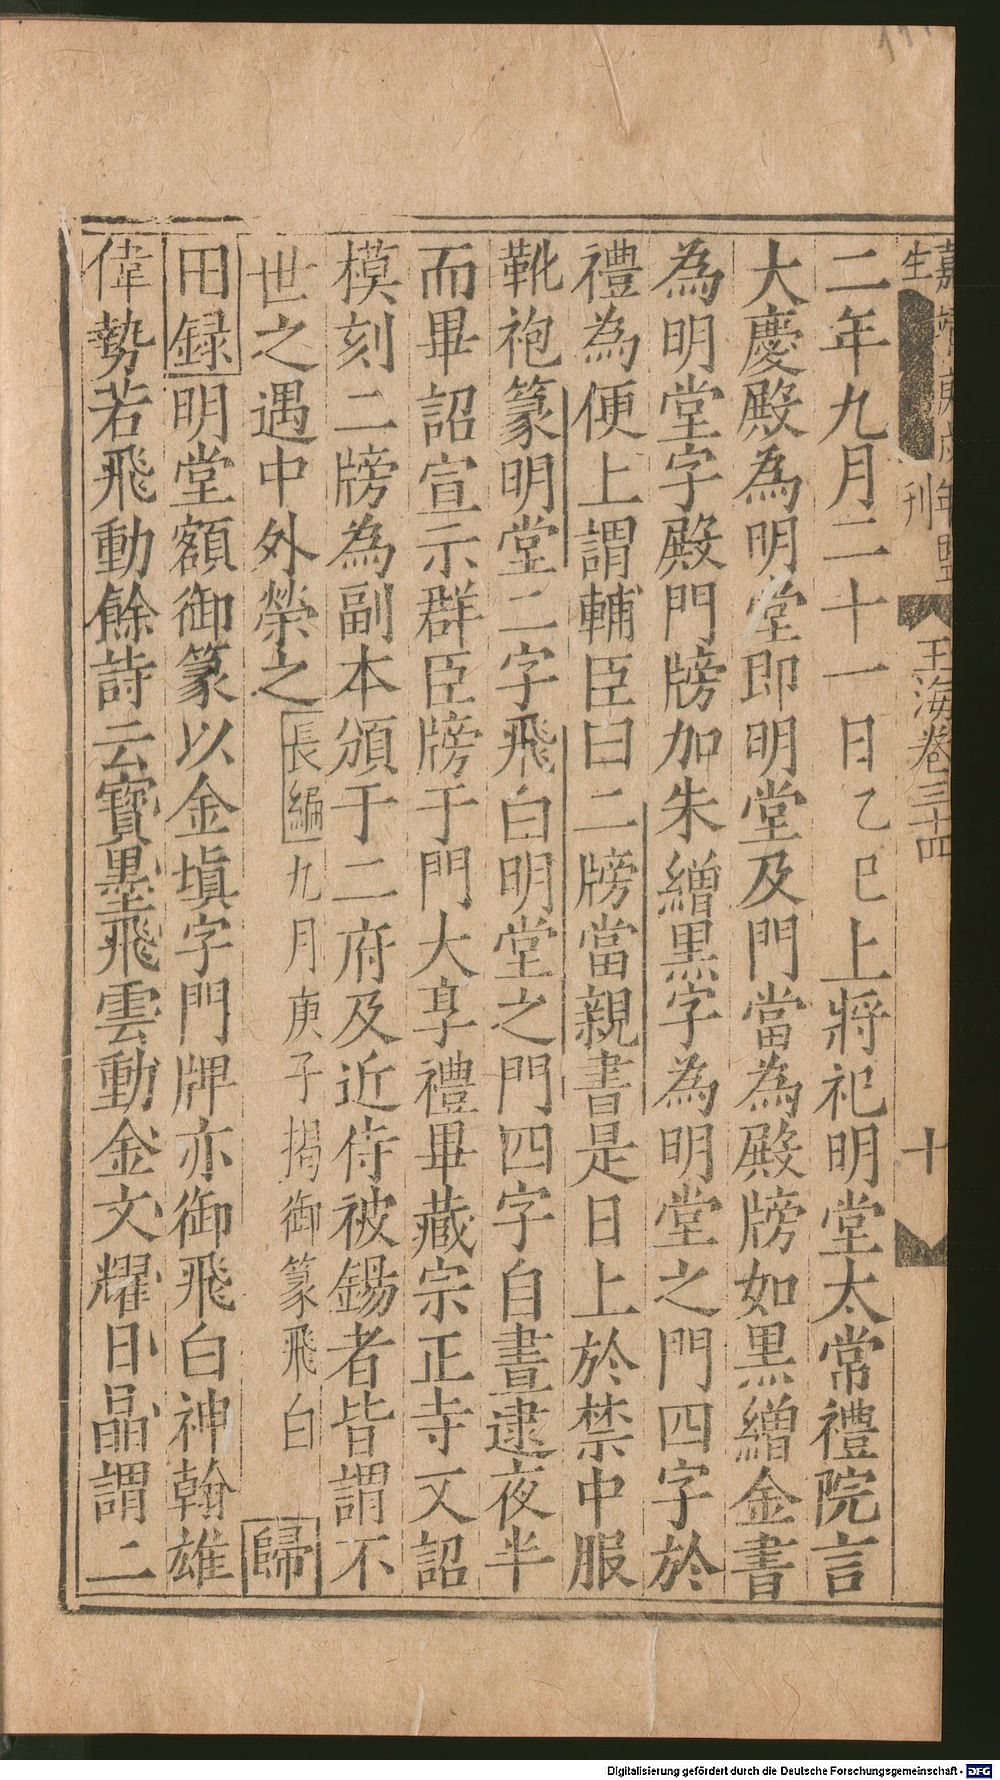 二年九月二十一日乙巳上將祀明堂太常禮院言
大慶殿為明堂即明堂及門當為殿牓如黑繒金書
為明堂字殿門牓加朱繒黑字為明堂之門四字於
禮為便上謂輔臣曰二牓當親書是日上於禁中服
靴袍篆明堂二字飛白明堂之門四字自晝逮夜半
而畢詔宣示群臣牓于門大享禮畢藏宗正寺又詔
模刻二牓為副本頒于二府及近侍被錫者皆謂不
世之遇中外榮之長編九月庚子揭御篆飛白 歸
田録明堂額御篆以金塡字門牌亦御飛白神翰雄
偉勢若飛動餘詩云寶墨飛雲動金文耀日晶謂二
嘉靖庚戌年
生 刊
玉海卷三十四
十
Digitalisierung gefördert durch die Deutsche Forschungsgemeinschaft - DFG